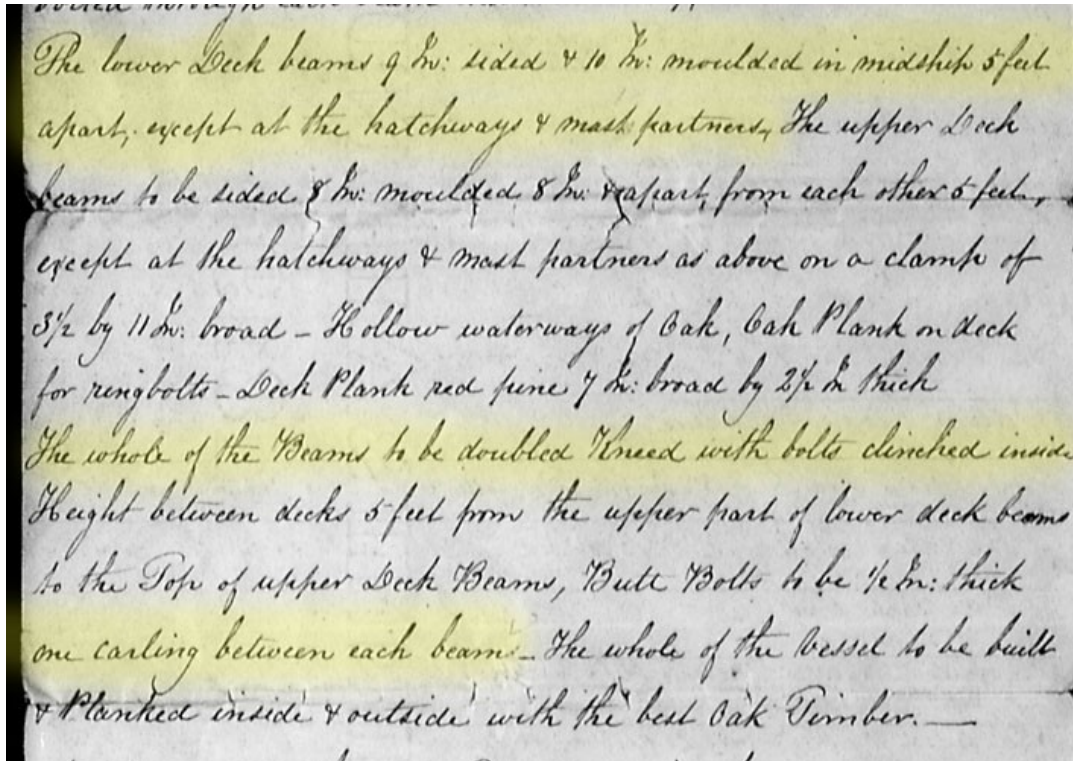 bolted through each
The lower Deck beams 9 In: sided & 10 In: moulded in midship 5 feet
apart, except at the hatchways & mast partners, The upper Deck
beams to be sided 8 In: moulded 8 In: & apart from each other 5 feet,
except at the hatchways & mast partners as above on a clamp of
3½ by 11 In: broad – Hollow waterways of Oak, Oak Plank on deck
for ringbolts – Deck Plank red pine 7 In: broad by 2½ In thick
The whole of the Beams to be doubled Kneed with bolts clinched inside
Height between decks 5 feet from the upper part of lower deck beams
to the Top of upper Deck Beams, Butt Bolts to be ½ In: thick
one carling between each beam – The whole of the Vessel to be built
& Planked inside & outside with the best Oak Timber. —